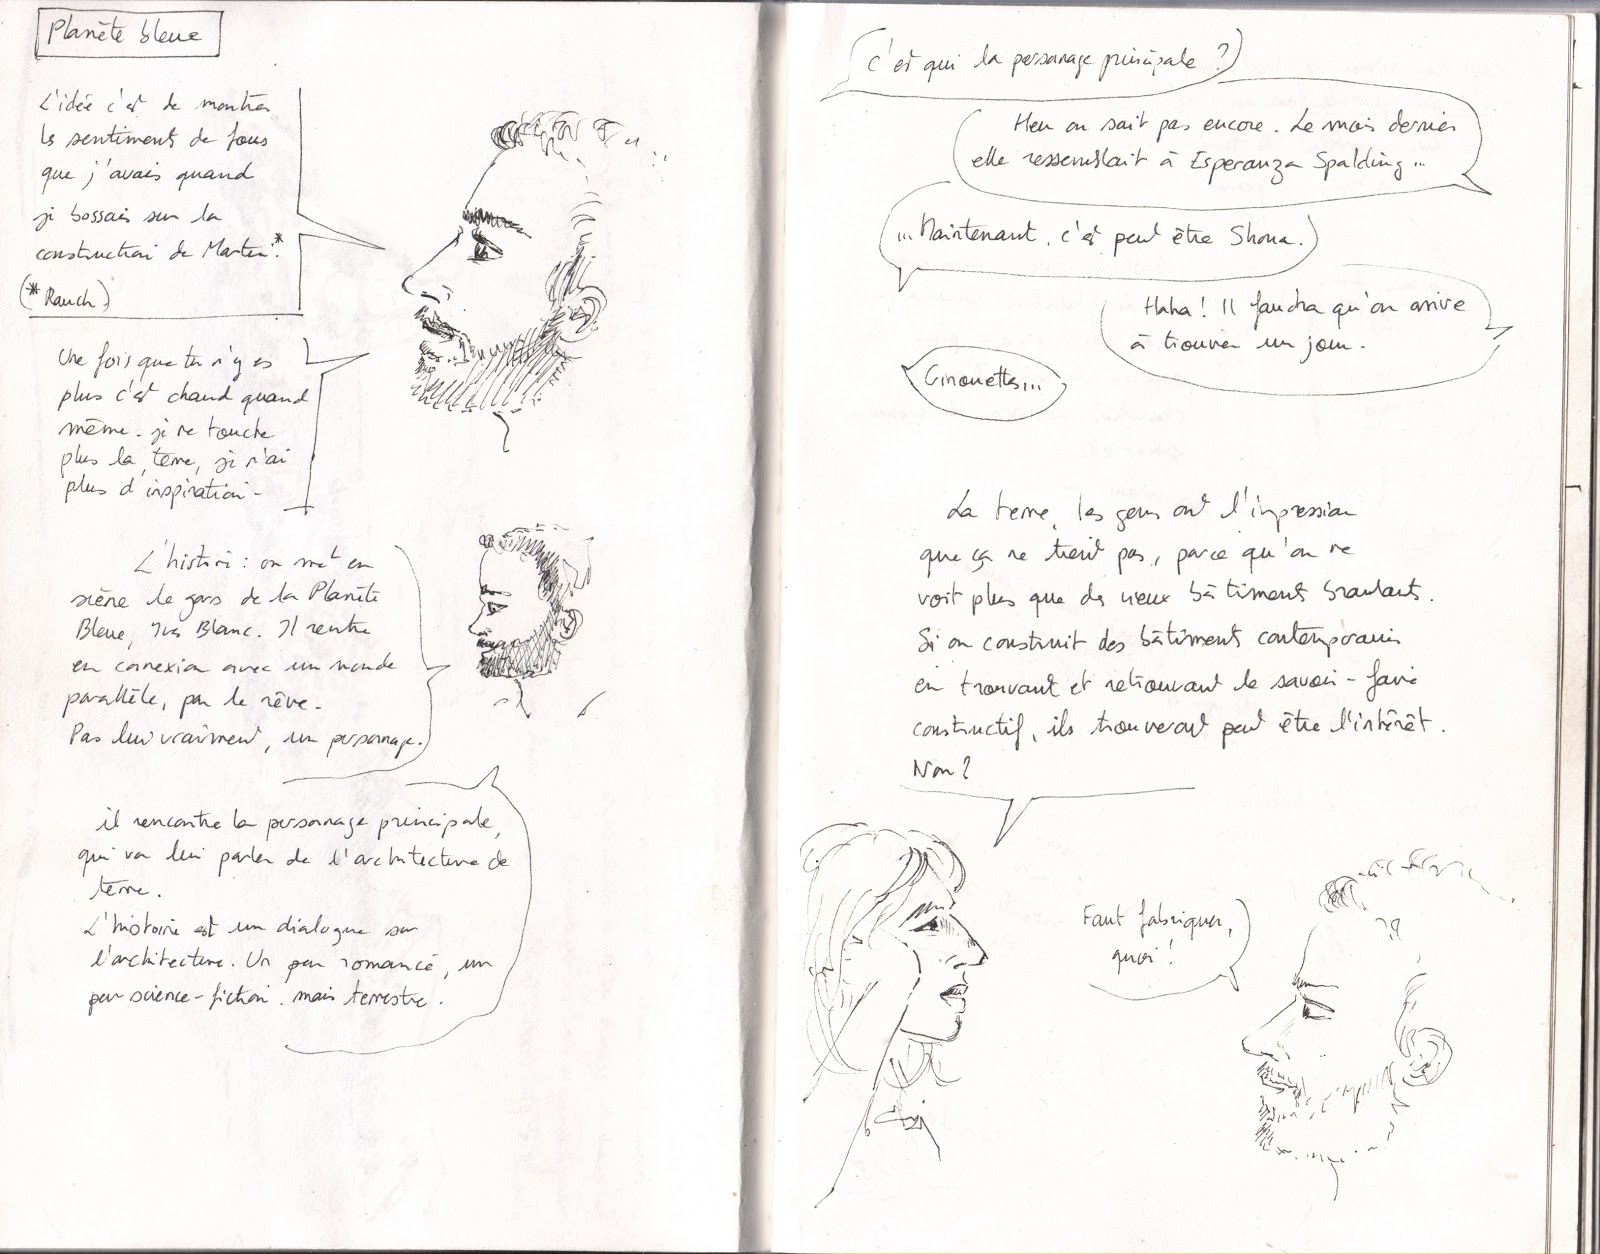 Planète bleue
L'idée c'est de montrer
le sentiment de fous
que j'avais quand
je bossais sur la
construction de Martin*
(* Rauch)
Une fois que tu n'y es
plus c'est chaud quand
même. je ne touche
plus la terre, je n'ai
plus d'inspiration -
L'histoire : on met en
scène le gars de la Planète
Bleue, Yves Blanc. Il rentre
en connexion avec un monde
parallèle, par le rêve.
Pas lui vraiment, un personnage.
il rencontre la personnage principale,
qui va lui parler de l'architecture de
terre.
L'histoire est un dialogue sur
l'architecture. Un peu romancé, un
peu science-fiction. mais terrestre.
C'est qui la personnage principale ?
Heu on sait pas encore. Le mois dernier
elle ressemblait à Esperanza Spalding...
... Maintenant, c'est peut être Shona.
Haha ! Il faudra qu'on arrive
à trouver un jour.
Girouettes...
La terre, les gens ont l'impression
que ça ne tient pas, parce qu'on ne
voit plus que des vieux bâtiments branlants.
Si on construit des bâtiments contemporains
en trouvant et retrouvant le savoir-faire
constructif, ils trouveront peut être l'intérêt.
Non ?
Faut fabriquer,
quoi !